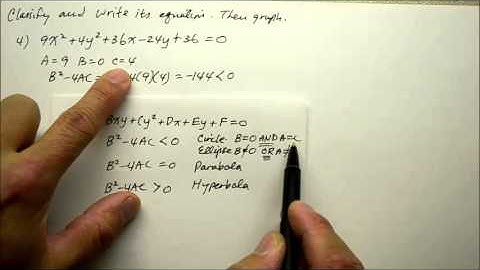 Classify and write its equation. Then graph.
4) 9x²+4y²+36x-24y+36=0
A=9 B=0 C=4
B²-4AC= 4(9)(4)=-144<0
Bxy+Cy²+Dx+Ey+F=0
B²-4AC<0 Circle B=0 AND A=C
Ellipse B≠0 OR A≠
B²-4AC=0 Parabola
B²-4AC>0 Hyperbola